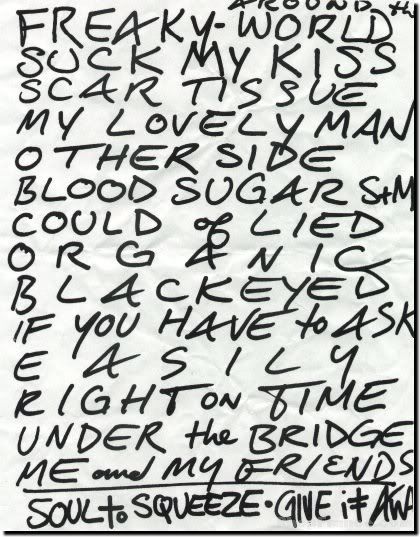 AROUND th
FREAKY-WORLD
SUCK MY KISS
SCAR TISSUE
MY LOVELY MAN
OTHERSIDE
BLOOD SUGAR S+M
COULD of LIED
ORGANIC
BLACKEYED
IF YOU HAVE to ASK
EASILY
RIGHT ON TIME
UNDER the BRIDGE
ME and MY FRIENDS
SOUL to SQUEEZE · GIVE it AWA